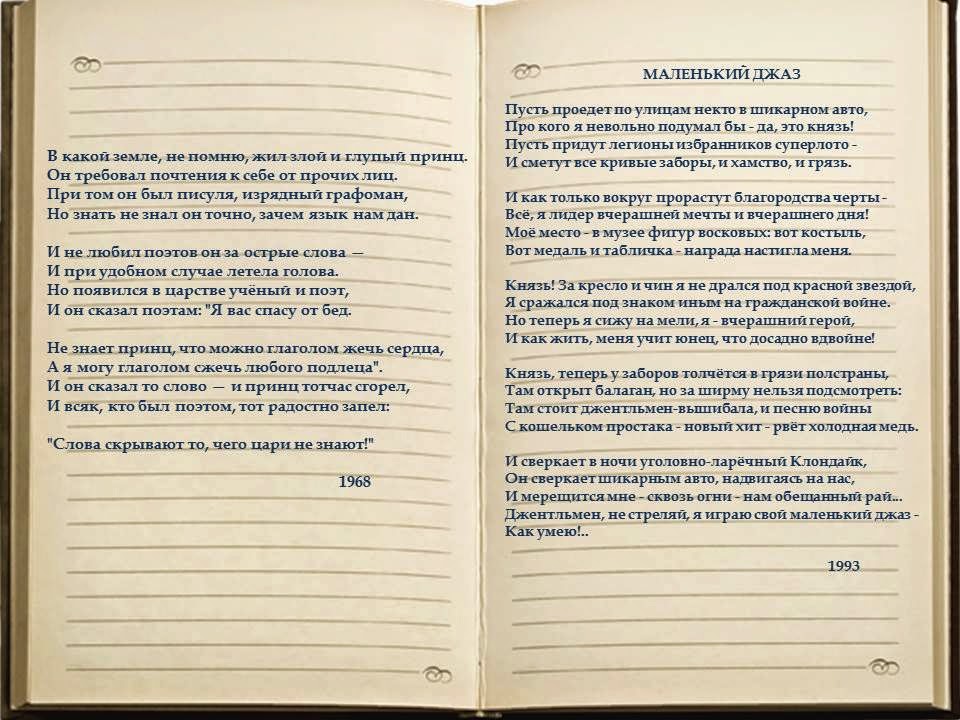 В какой земле, не помню, жил злой и глупый принц.
Он требовал почтения к себе от прочих лиц.
При том он был писуля, изрядный графоман,
Но знать не знал он точно, зачем язык нам дан.

И не любил поэтов он за острые слова —
И при удобном случае летела голова.
Но появился в царстве учёный и поэт,
И он сказал поэтам: "Я вас спасу от бед.

Не знает принц, что можно глаголом жечь сердца,
А я могу глаголом сжечь любого подлеца".
И он сказал то слово — и принц тотчас сгорел,
И всяк, кто был поэтом, тот радостно запел:

"Слова скрывают то, чего цари не знают!"

1968

МАЛЕНЬКИЙ ДЖАЗ

Пусть проедет по улицам некто в шикарном авто,
Про кого я невольно подумал бы - да, это князь!
Пусть придут легионы избранников суперлото -
И сметут все кривые заборы, и хамство, и грязь.

И как только вокруг прорастут благородства черты -
Всё, я лидер вчерашней мечты и вчерашнего дня!
Моё место - в музее фигур восковых: вот костыль,
Вот медаль и табличка - награда настигла меня.

Князь! За кресло и чин я не дрался под красной звездой,
Я сражался под знаком иным на гражданской войне.
Но теперь я сижу на мели, я - вчерашний герой,
И как жить, меня учит юнец, что досадно вдвойне!

Князь, теперь у заборов толчётся в грязи полстраны,
Там открыт балаган, но за ширму нельзя подсмотреть:
Там стоит джентльмен-вышибала, и песню войны
С кошельком простака - новый хит - рвёт холодная медь.

И сверкает в ночи уголовно-ларёчный Клондайк,
Он сверкает шикарным авто, надвигаясь на нас,
И мерещится мне - сквозь огни - нам обещанный рай...
Джентльмен, не стреляй, я играю свой маленький джаз -
Как умею!..

1993